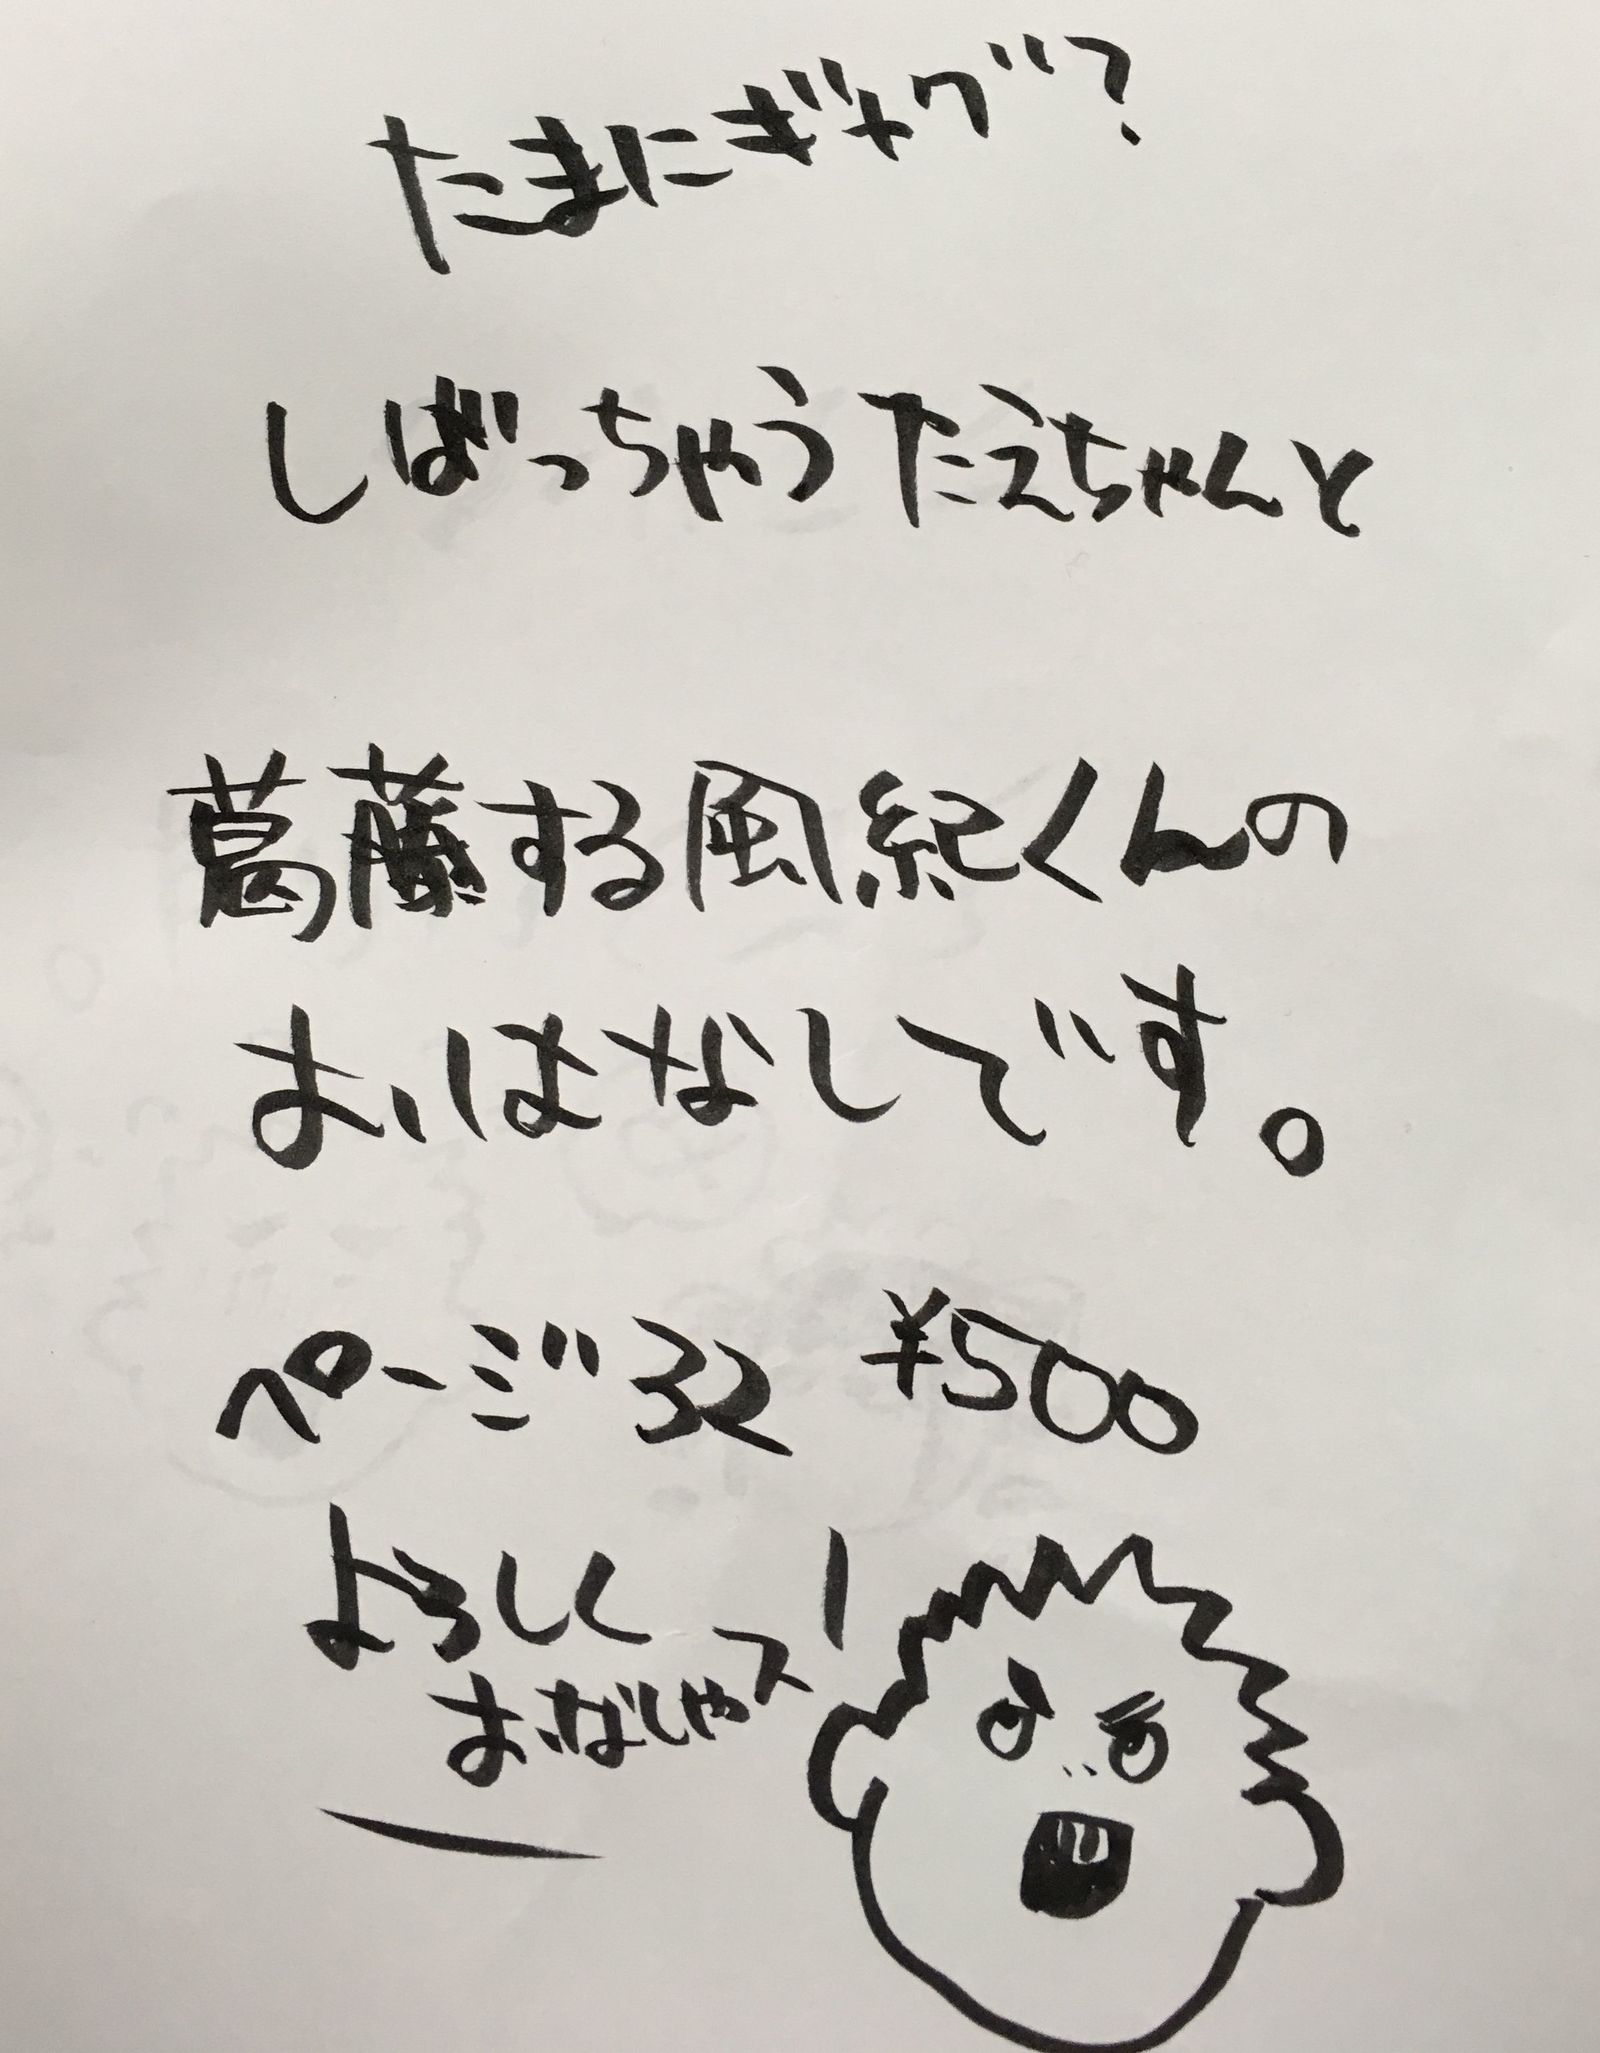 たまにギャグ?
しばっちゃうたえちゃんと
葛藤する風紀くんの
おはなしです。
ページ32 ¥500
よろしく
おなしゃス